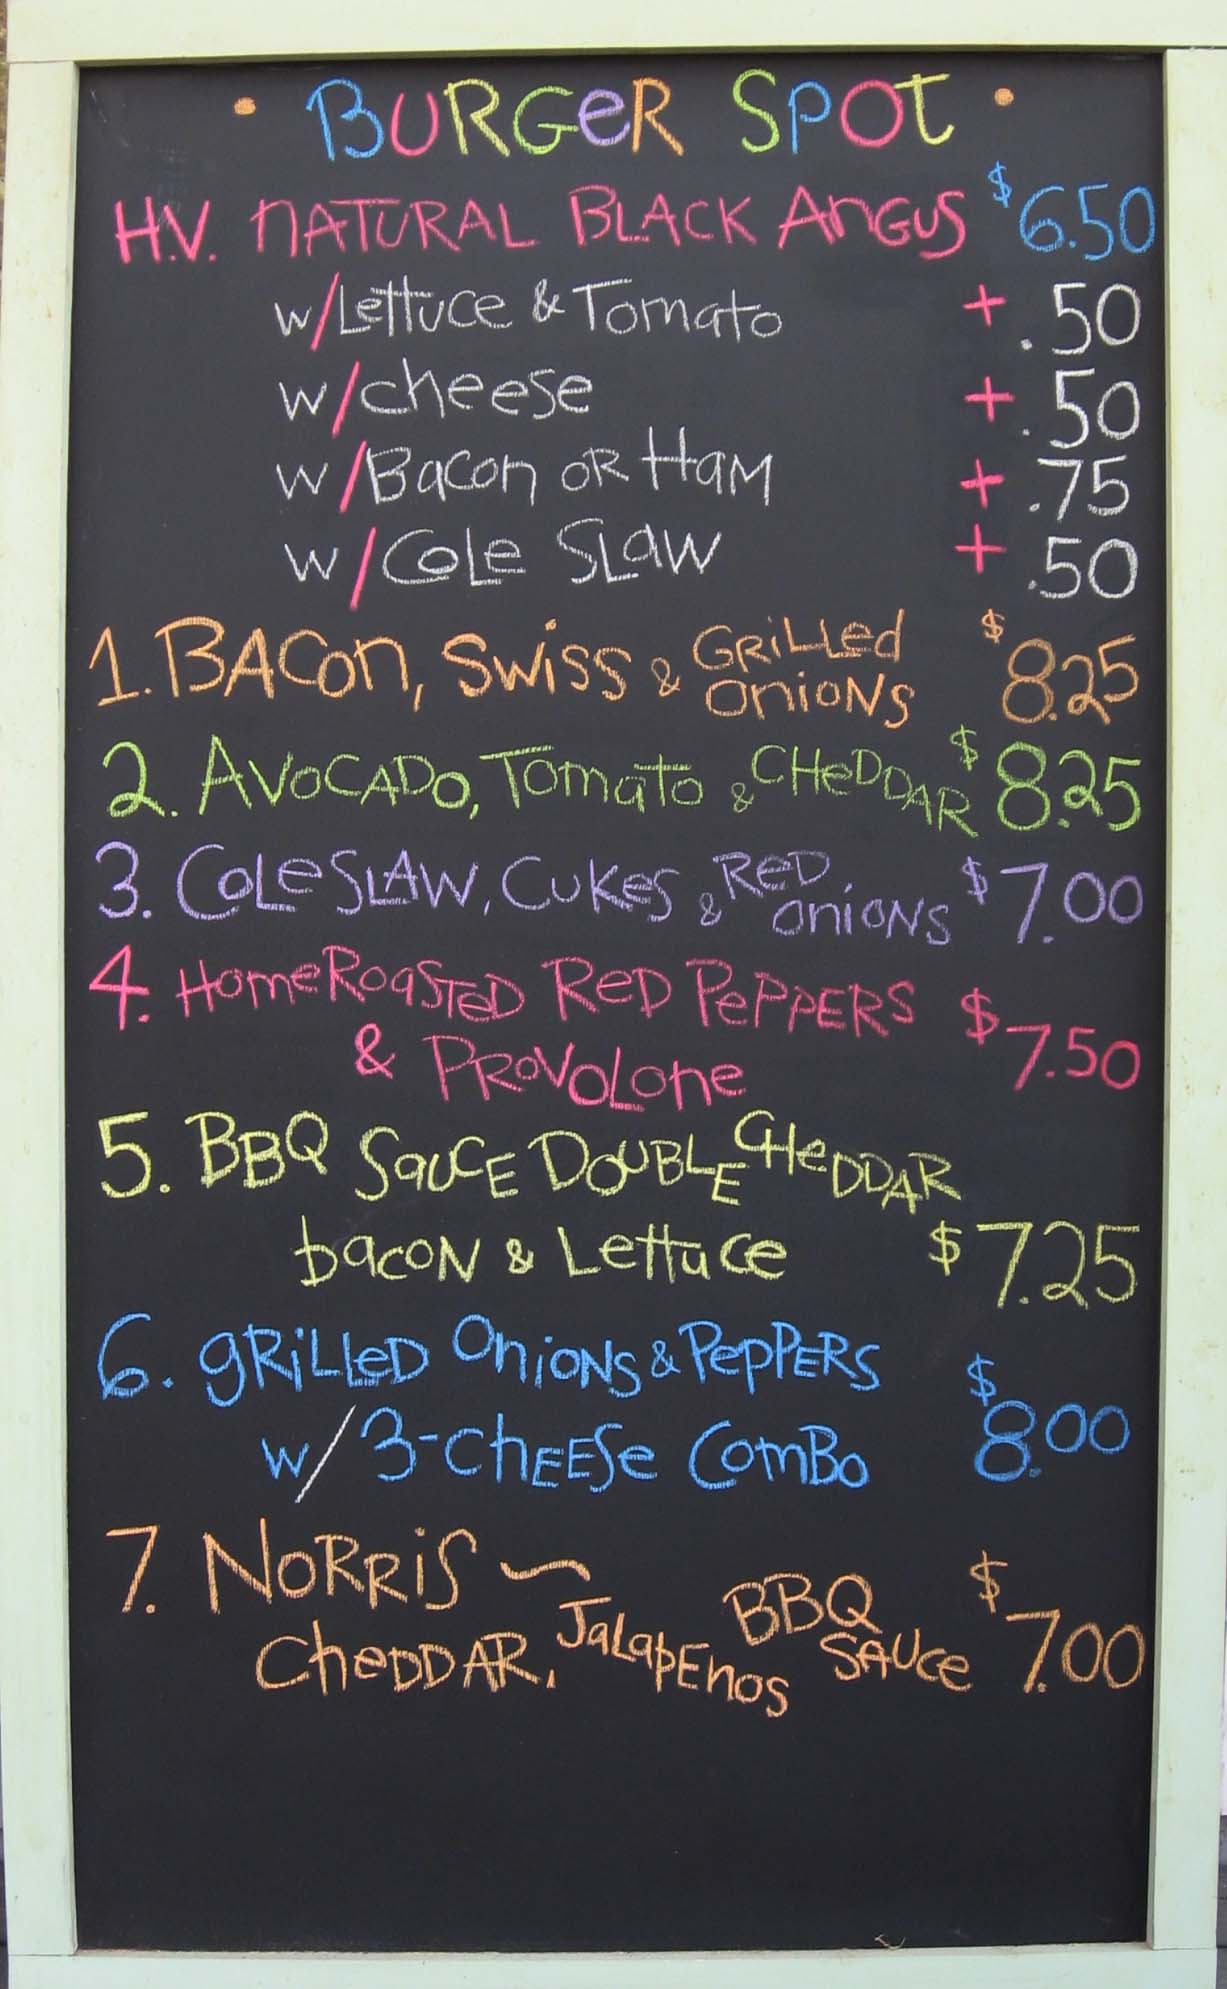 • BURGER SPOT •
H.V. NATURAL BLACK ANGUS $6.50
w/Lettuce & Tomato + .50
w/cheese + .50
w/Bacon OR Ham + .75
w/Cole Slaw + .50
1. BACON, SWISS & GRILLED ONIONS $8.25
2. AVOCADO, Tomato & CHEDDAR $8.25
3. COLESLAW, CUKES & RED ONIONS $7.00
4. HOMEROASTED RED PEPPERS $7.50
& PROVOLONE
5. BBQ SAUCE DOUBLE CHEDDAR
bacon & Lettuce $7.25
6. GRILLED ONIONS & PEPPERS
w/ 3-CHEESE COMBO $8.00
7. NORRIS ~
CHEDDAR, JALAPENOS BBQ SAUCE $7.00